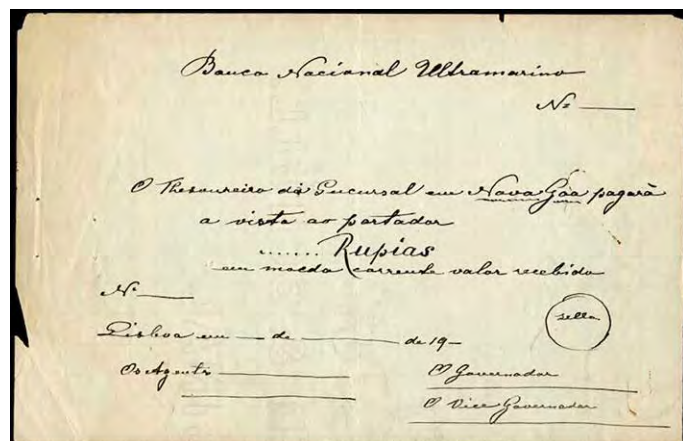 Banco Nacional Ultramarino
Nº ———
O Thesoureiro da Sucursal em Nova Gôa pagará
a vista ao portador
...... Rupias
em moeda corrente valor recebido
Nº ———
sello
Lisboa em — de ——— de 19—
Os Agents ———
O Governador
O Vice Governador